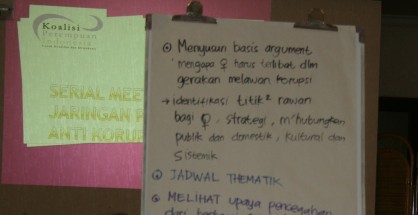 Koalisi
Perempuan
Indonesia
SERIAL MEE
JARINGAN P
ANTI KORU
Menyusun basis argument
mengapa ♀ harus terlibat dlm
gerakan melawan korupsi
→ identifikasi titik² rawan
bagi ♀, strategi, m'hubungkan
publik dan domestik, kultural dan
Sistemik
JADWAL THEMATIK
MELIHAT upaya pencegahan